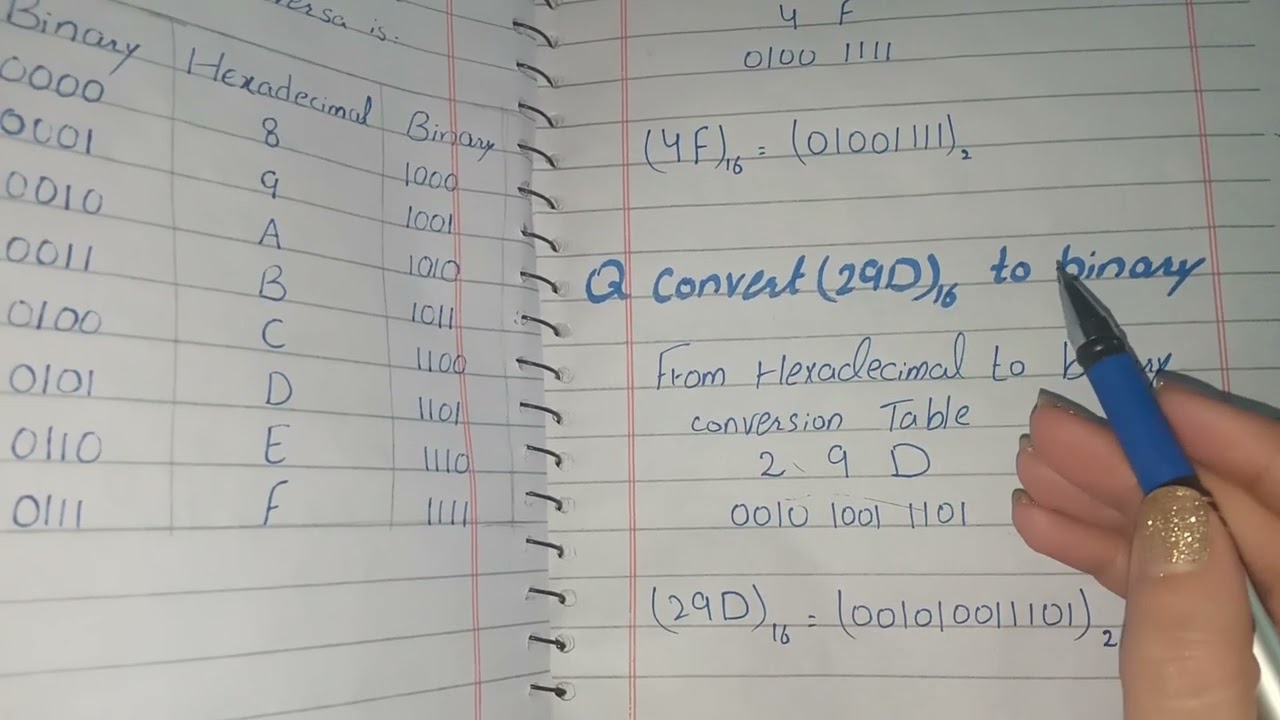 ersa is.
Binary Hexadecimal Binary
0000 8 1000
0001 9 1001
0010 A 1010
0011 B 1011
0100 C 1100
0101 D 1101
0110 E 1110
0111 F 1111
4 F
0100 1111
(4F)16 = (01001111)2
Q Convert (29D)16 to binary
From Hexadecimal to
conversion Table
2 9 D
0010 1001 1101
(29D)16 = (001010011101)2